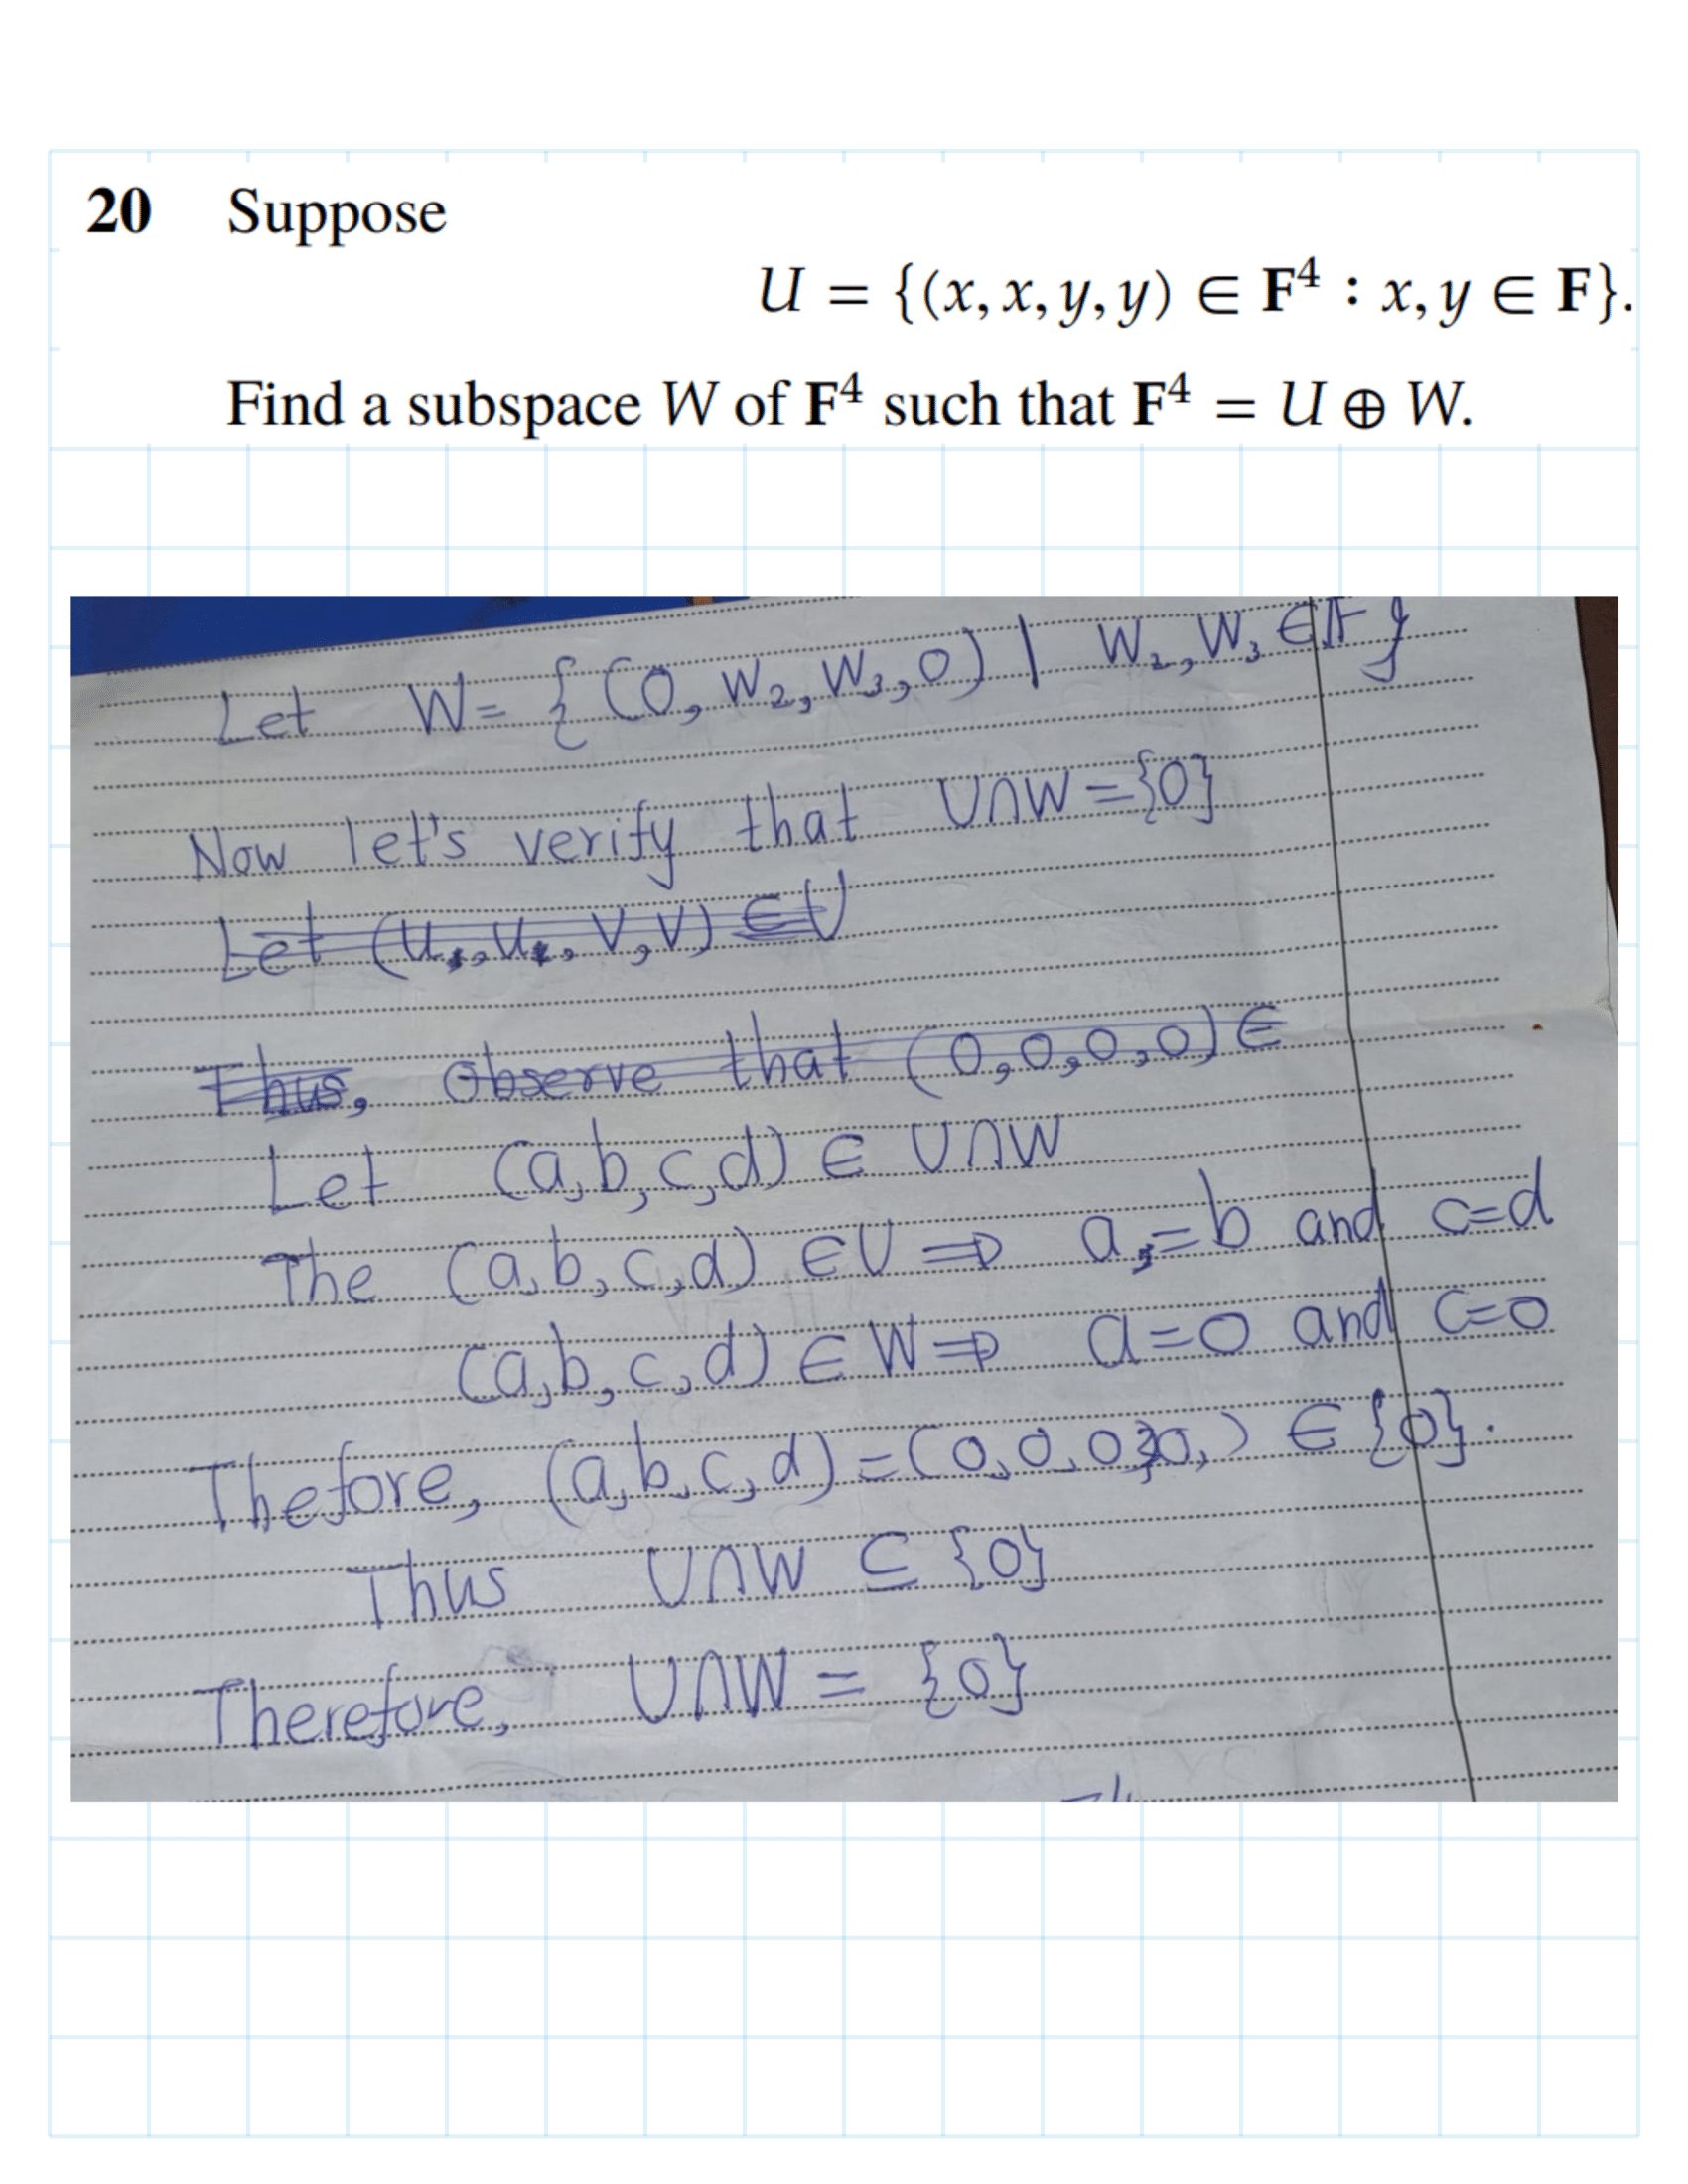 20 Suppose
U = {(x, x, y, y) ∈ F⁴ : x, y ∈ F}.
Find a subspace W of F⁴ such that F⁴ = U ⊕ W.
Let W = {(0, w₂, w₃, 0) | w₂, w₃ ∈ F}
Now let's verify that U∩W = {0}
Let (u₁, u₂, v, v) ∈ U
Thus, Observe that (0,0,0,0) ∈
Let (a,b,c,d) ∈ U∩W
The (a,b,c,d) ∈ U ⇒ a = b and c=d
(a,b,c,d) ∈ W ⇒ a=0 and c=0
Thefore, (a,b,c,d) = (0,0,0,0,) ∈ {0}.
Thus U∩W ⊆ {0}
Therefore, U∩W = {0}